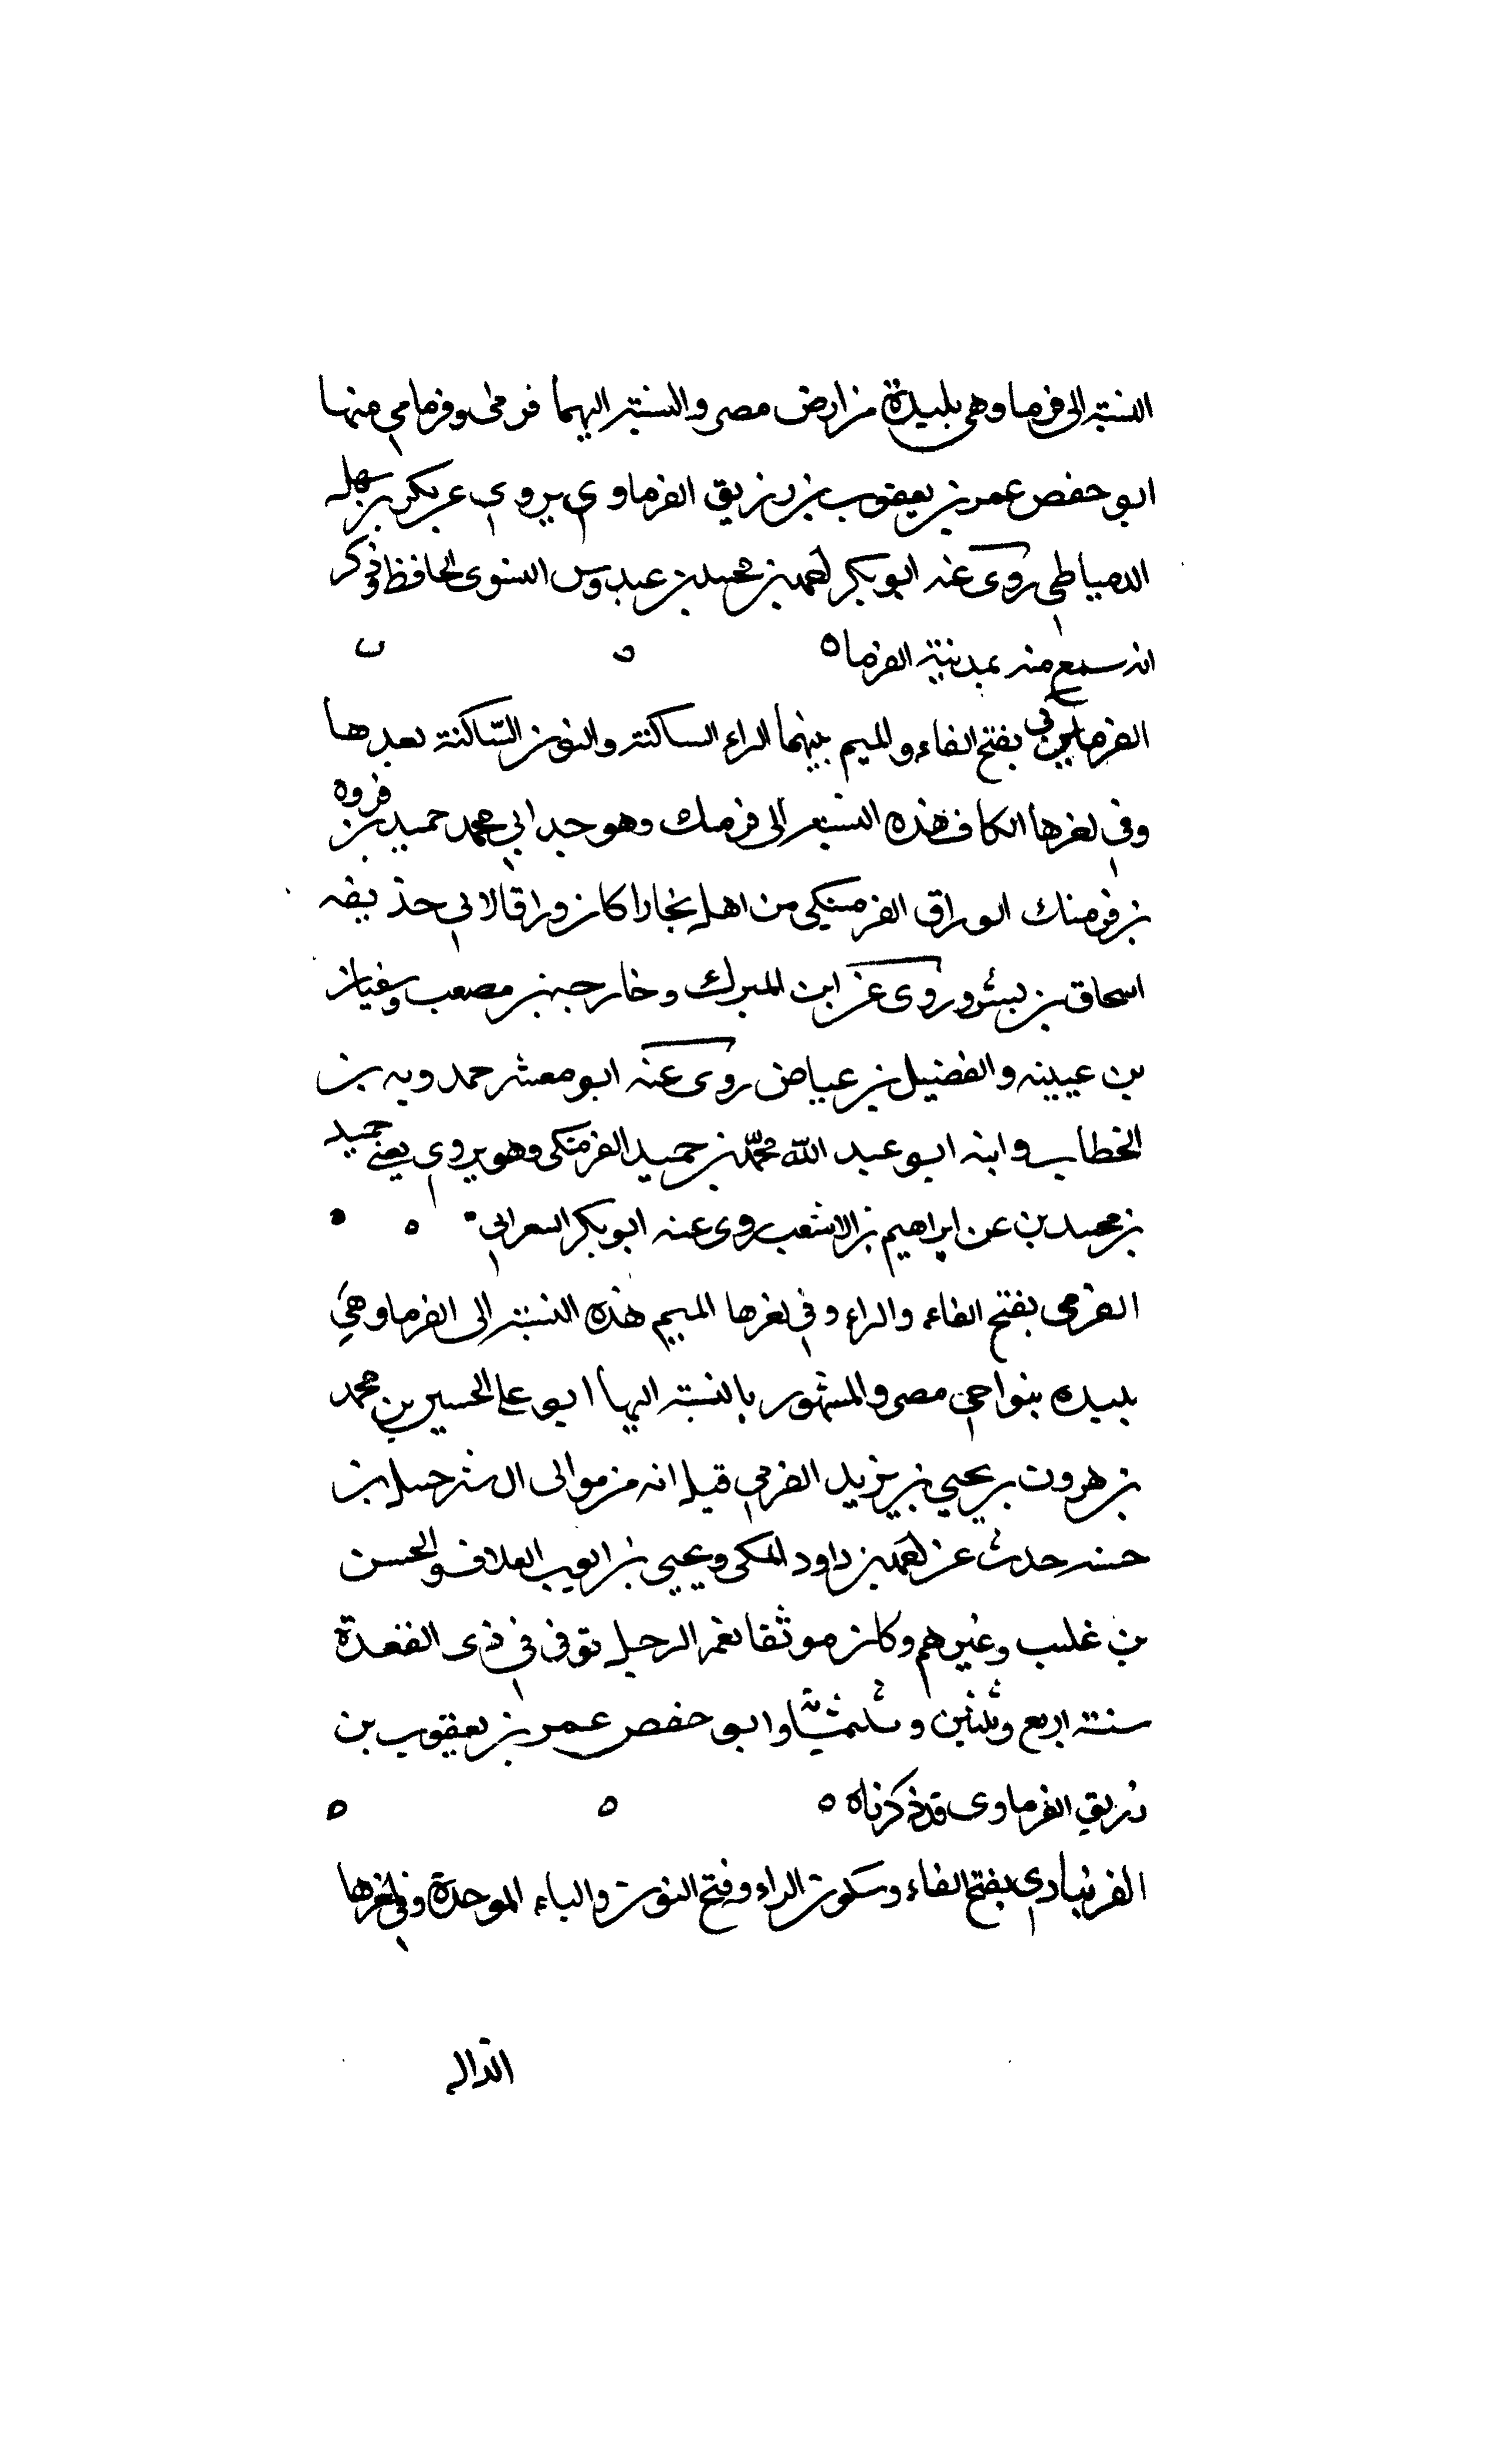 النسبة الى فرما وهى بليدة من ارض مصر والنسبة اليهما فرمى وفرمامى منها
ابو حفص عمر بن يعقوب بن رزيق الفرماوى يروى عن بكر بن سهل
الدمياطى روى عنه ابو بكر احمد بن محمد بن عبدوس النسوى الحافظ وذكر
انه سمع منه بمدينة الفرما ه
بفتح الفاء والميم بينهما الراء الساكنة والنون الساكنة بعدها
وفى اخرها الكاف هذه النسبة الى فرمنك وهو جد ابى محمد حميد بن فروه
بن فرمنك الوراق الفرمنكى من اهل بخارا كان وراقا لابى حذيفه
اسحاق بن بشر وروى عن ابن المبرك وخارجه بن مصعب وسفيان
بن عيينه والفضيل بن عياض روى عنه ابو معشر حمدويه بن
الخطاب وابنه ابو عبد الله محمد بن حميد الفرمنكى وهو يروى يعنى حميد
بن محمد بن عن ابراهيم بن الاشعب روى عنه ابو بكر
الفرمى بفتح الفاء والراء وفى اخرها الميم هذه النسبة الى الفرما وهى
بليده بنواحى مصر والمشهور بالنسبة اليها ابو على الحسين بن محمد
بن هرون بن يحيى بن يزيد الفرمى قيل انه من موالى ال شرحبيل بن
حسنه حدث عن احمد بن داود المكى ويحيى بن ايوب العلاف والحسن
بن غليب وغيرهم وكان موثقا نعم الرجل توفى فى ذى القعدة
سنة اربع وثلثين وثلثمئة وابو حفص عمر بن يعقوب بن
زريق الفرماوى قد ذكرناه ه
الفرنبادى بفتح الفاء وسكون الراء وفتح النون والباء الموحدة وفى اخرها
الدال